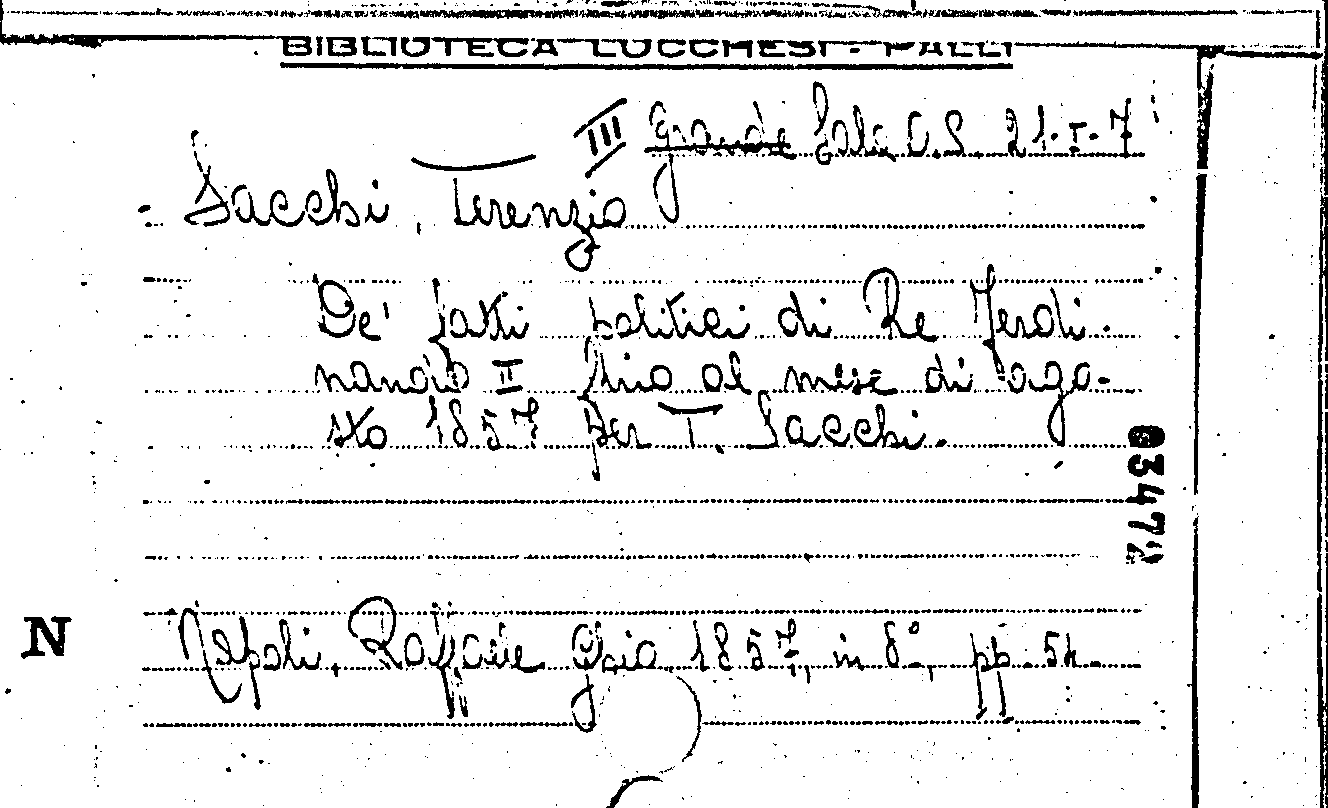 BIBLIOTECA LUCCHESI - PALLI
III Grande Sala C.S. 21.I.7
Sacchi, Terenzio
De' fatti politici di Re Ferdi-
nando II fino al mese di ago-
sto 1857 per T. Sacchi.
03472
N
Napoli, Raffaele 1857, in 8°, pp. 54